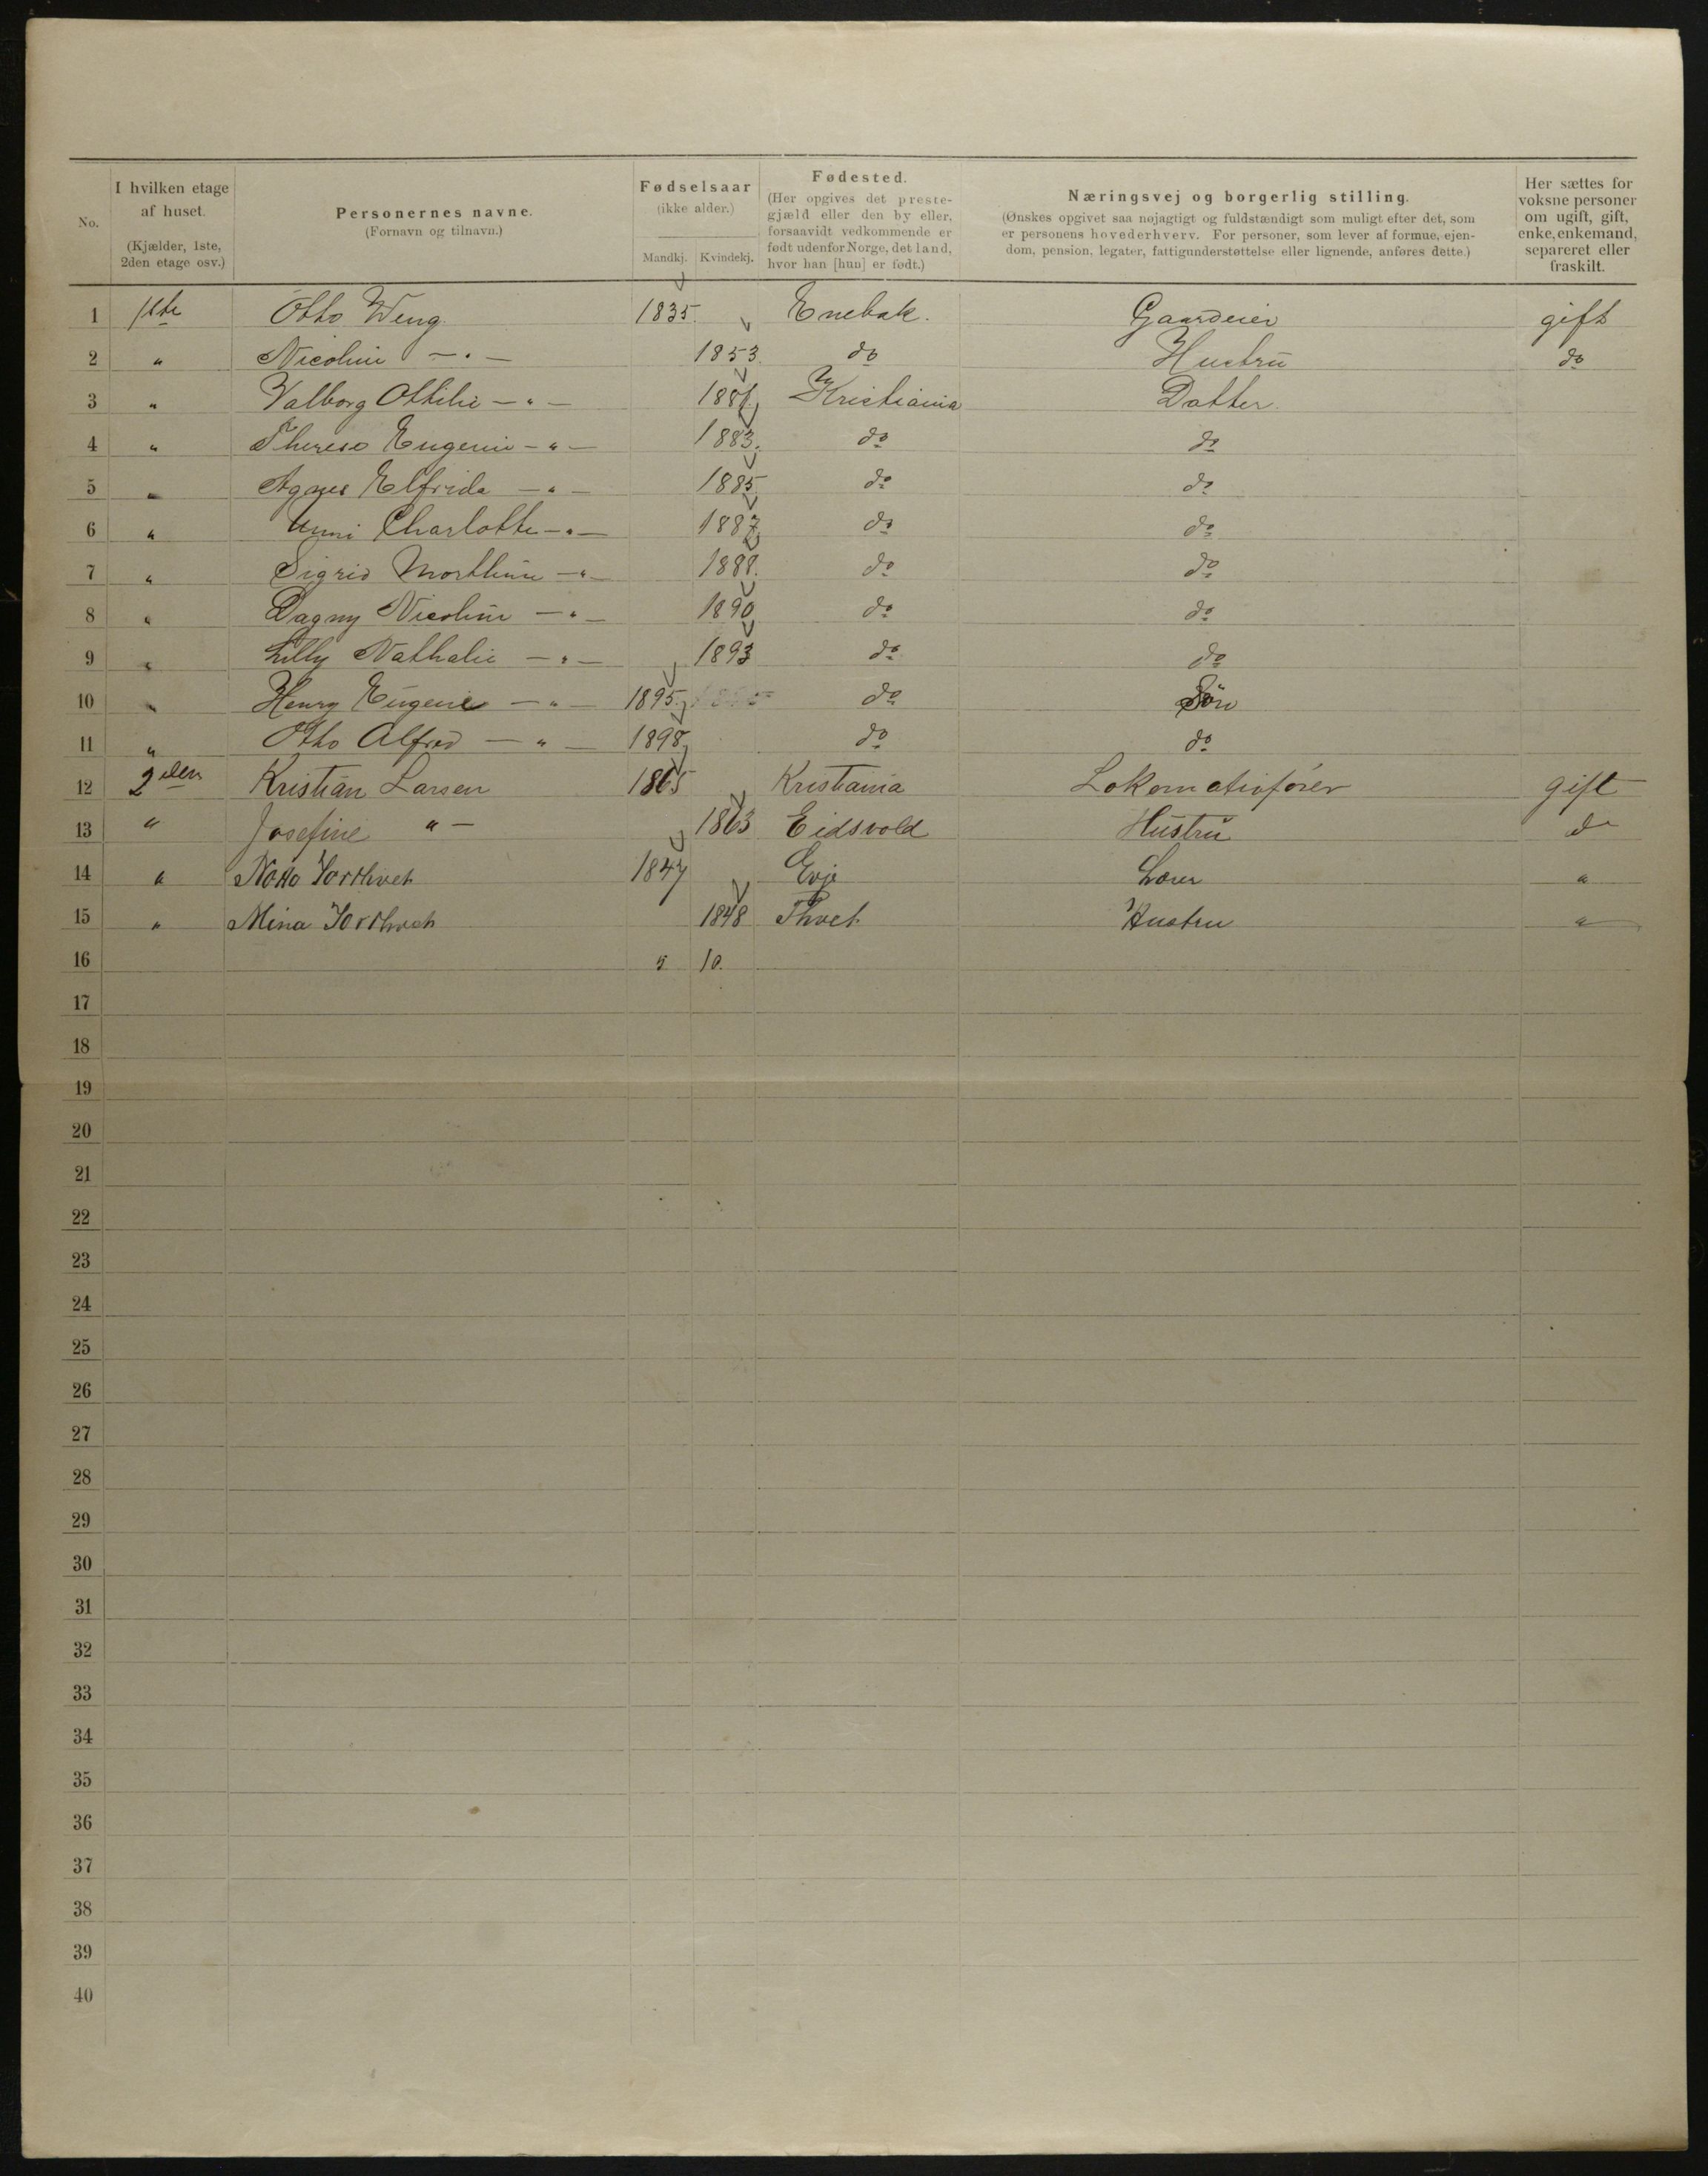 No. | I hvilken etage af huset. (Kjælder, 1ste, 2den etage osv.) | Personernes navne. (Fornavn og tilnavn.) | Fødselsaar (ikke alder.) Mandkj. Kvindekj. | Fødested. (Her opgives det prestegjæld eller den by eller, forsaavidt vedkommende er født udenfor Norge, det land, hvor han [hun] er født.) | Næringsvej og borgerlig stilling. (Ønskes opgivet saa nøjagtigt og fuldstændigt som muligt efter det, som er personens hovederhverv. For personer, som lever af formue, ejendom, pension, legater, fattigunderstøttelse eller lignende, anføres dette.) | Her sættes for voksne personer om ugift, gift, enke, enkemand, separeret eller fraskilt.
1 1ste Otto Weng 1835. Enebak. Gaardeier gift
2 " Nicoline — " — 1853. do Hustru do
3 " Valborg Ottilie — " — 1881. Kristiania Datter.
4 " Therese Eugenie — " — 1883. do do
5 " Agnes Elfrida — " — 1885 do do
6 " Unni Charlotte — " — 1887. do do
7 " Sigrid Morthine — " — 1888. do do
8 " Dagny Nicoline — " — 1890 do do
9 " Lilly Nathalie — " — 1893 do do
10 " Henry Eugene — " — 1895. do Søn
11 " Otto Alfred — " — 1898. do do
12 2den Kristian Larsen 1865 Kristiania Lokomotivfører gift
13 " Josefine " — 1863 Eidsvold Hustru do
14 " 1847 Evje Lærer "
15 " Mina 1848 Thvet Hustru "
16 5 10.
17
18
19
20
21
22
23
24
25
26
27
28
29
30
31
32
33
34
35
36
37
38
39
40